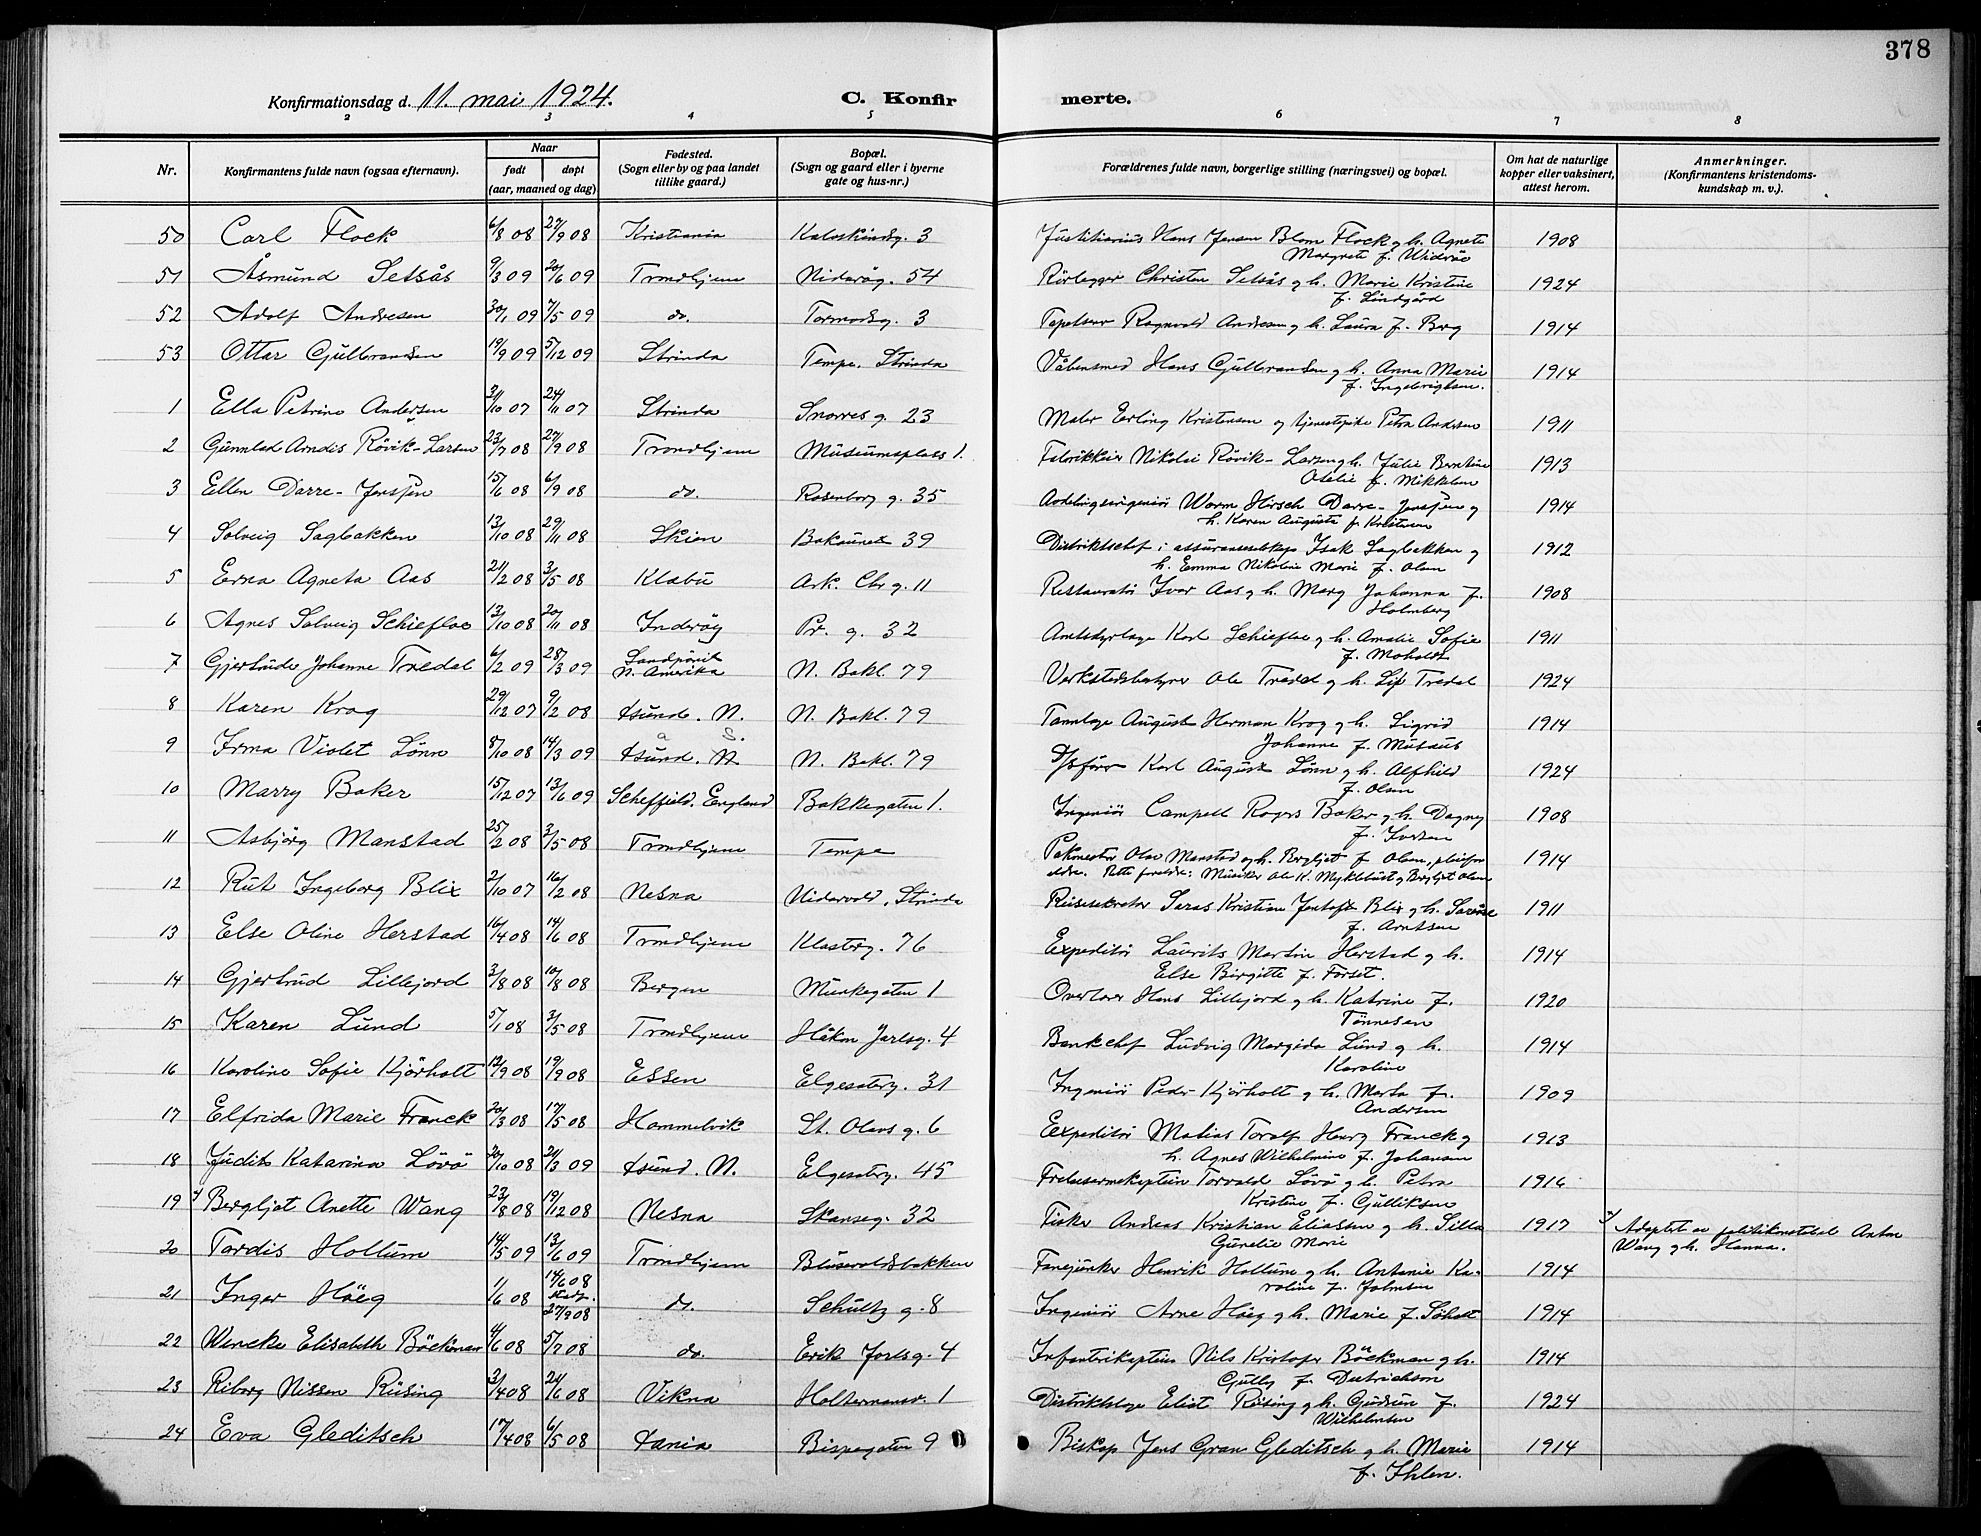 378
Konfirmationsdag d. 11. mai 1924. C. Konfirmerte.
2 3 4 5 6 7 8
Nr. Konfirmantens fulde navn (ogsaa efternavn). Naar født døpt (aar, maaned og dag) Fødested. (Sogn eller by og paa landet tillike gaard.) Bopæl. (Sogn og gaard eller i byerne gate og hus-nr.) Forældrenes fulde navn, borgerlige stilling (næringsvei) og bopæl. Om hat de naturlige kopper eller vaksinert, attest herom. Anmerkninger. (Konfirmantens kristendomskundskap m. v.).
50 Carl Flock 6/8 08 27/9 08 Kristiania Kalvskindsg. 3 Justitiarius Hans Jensen Blom Flock g h. Agnete 1908
Margrete f. Widröe
51 Åsmund Setsås 9/3 09 20/6 09 Trondhjem Nidarög. 54 Rörlegger Christen Setsås g h. Marie Kristine 1924
f. Lindgård
52 Adolf Andresen 30/1 09 7/5 09 do. Tormodsg. 3 Tapetserer Ragnvald Andresen g h. Laura f. Berg 1914
53 Ottar Gulbrandsen 19/9 09 5/12 09 Strinda Tempe, Strinda Våbensmed Hans Gulbrandsen g h. Anna Marie 1914
f. Ingebrigtsen.
1 Ella Petrine Andersen 31/10 07 24/11 07 Strinda Snorres g. 23 Maler Erling Kristensen og tjenestepike Petra Andersen 1911
2 Gunnlad Arndis Rövik-Larsen 23/7 08 27/9 08 Trondhjem Museumsplass 1. Fabrikkeier Nikolai Rövik-Larsen g h. Julie Berntine 1913
Otelie f. Mikkelsen
3 Ellen Darre-Jenssen 15/6 08 6/9 08 do. Rosenborg g. 35 Avdelingsingeniör Worm Hirsch Darre-Jenssen g 1914
h. Karen Augusta f. Kristensen
4 Solveig Sagbakken 13/10 08 29/11 08 Skien Bakaunet 39 Distriktschef i assuranseselskap Isak Sagbakken g 1912
h. Emma Nikoline Marie f. Olsen
5 Erna Agneta Aas 21/2 08 3/5 08 Klæbu Ark. Chr g. 11 Restauratör Ivar Aas g h. Marg Johanna f. 1908
Holmberg
6 Agnes Solveig Schiefloe 13/10 08 20/11 08 Inderöy Pr. g. 32 Amtsdyrlæge Karl Schiefloe g h. Amalie Sofie 1911
f. Moholdt
7 Gjertrude Johanne Tredal 6/2 09 28/3 09 Sandpoint N. Bakl. 79 Verkstedsbestyrer Ole Tredal g h. Lis Tredal 1924
N. Amerika
8 Karen Krog 29/12 07 9/2 08 Xsund. N. N. Bakl. 79 Tannlæge August Herman Krog g h. Sigrid 1914
Johanne f. Musæus
9 Irma Violet Lönn 8/10 08 14/3 09 Xsund. N N. Bakl. 79 D/sförer Karl August Lönn g h. Alfhild 1924
f. Olsen
10 Marry Baker 15/12 07 13/6 09 Scheffield. England Bakkegaten 1. Ingeniör Campell Rogers Baker g h. Dagny 1908
f. Iversen
11 Asbjörg Manstad 25/2 08 3/5 08 Trondhjem Tempe Pakmester Olav Manstad og h. Bergljot f. Olsen, pleiefor 1914
eldre. Rette foreldre: Musiker Ole K. Myklebust g Bergljot Olsen
12 Rut Ingeborg Blix 2/10 07 16/2 08 Nesna Nidarvold, Strinda Reisesekretær Saras Kristian Jentoft Blix g h. 1911
f. Arntsen
13 Else Oline Herstad 16/4 08 14/6 08 Trondhjem Klosterg. 76 Expeditör Laurits Martin Herstad g h. 1914
Else Birgitte f. Forset.
14 Gjertrud Lillejord 2/8 08 10/8 08 Bergen Munkegaten 1 Overlærer Hans Lillejord g h. Katrine f. 1920
Tönnesen
15 Karen Lund 5/1 08 3/5 08 Trondhjem Håkon Jarlsg. 4 Bankchef Ludvig Lund g h. 1914
Karoline
16 Karoline Sofie Kjörholt 12/9 08 19/9 08 Essen Elgesæterg. 31 Ingeniör Peder Kjörholt g h. Marta f. 1909
Andersen
17 Elfrida Marie Franck 20/3 08 17/5 08 Hommelvik St. Olavs g. 6 Expeditör Matias Toralf Henry Franck g 1913
h. Agnes Wilhelmine f. Johansen
18 Judit Katarina Lövö 20/10 08 21/3 09 Xsund. N. Elgesæterg. 45 Frelsesarmekaptein Torvald Lövö g h. Petra 1916
Kristine f. Gulliksen
19 Bergljot Anette Wang 23/8 08 19/12 08 Nesna Skanseg. 32 Fisker Andreas Kristian Eliassen g h. Silla 1917 Adoptert av politikonstabel Anton
Gurelie Marie Wang g h. Hanna.
20 Tordis Hollum 14/5 09 13/6 09 Trondhjem Blusevoldsbakken Fanejunker Henrik Hollum g h. Antonie Ka- 1914
roline f. Johnsen
21 Inger Höeg 1/6 08 14/6 08 stadf. 27/9 08 do. Schultz g. 8 Ingeniör Arne Höeg g h. Marie f. Söholt 1914
22 Wencke Elisabeth Böckman 4/6 08 5/7 08 do. Erik Jarlsg. 4 Infanterikaptein Nils Kristofer Böckman g h. 1914
Gully f. Dietrichson
23 Riborg Nissen Rüsing 3/4 08 21/6 08 Vikna Holtermansv. 1 Distriktslæge Elist Rüsing g h. Gudrun f. 1924
Wilhelmsen
24 Eva Gleditsch 17/4 08 6/5 08 Xania Bispegaten 9 Biskop Jens Gran Gleditsch g h. Marie 1914
f. Ihlen.